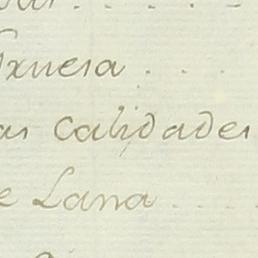 Gruesa
as calidades
e Lana